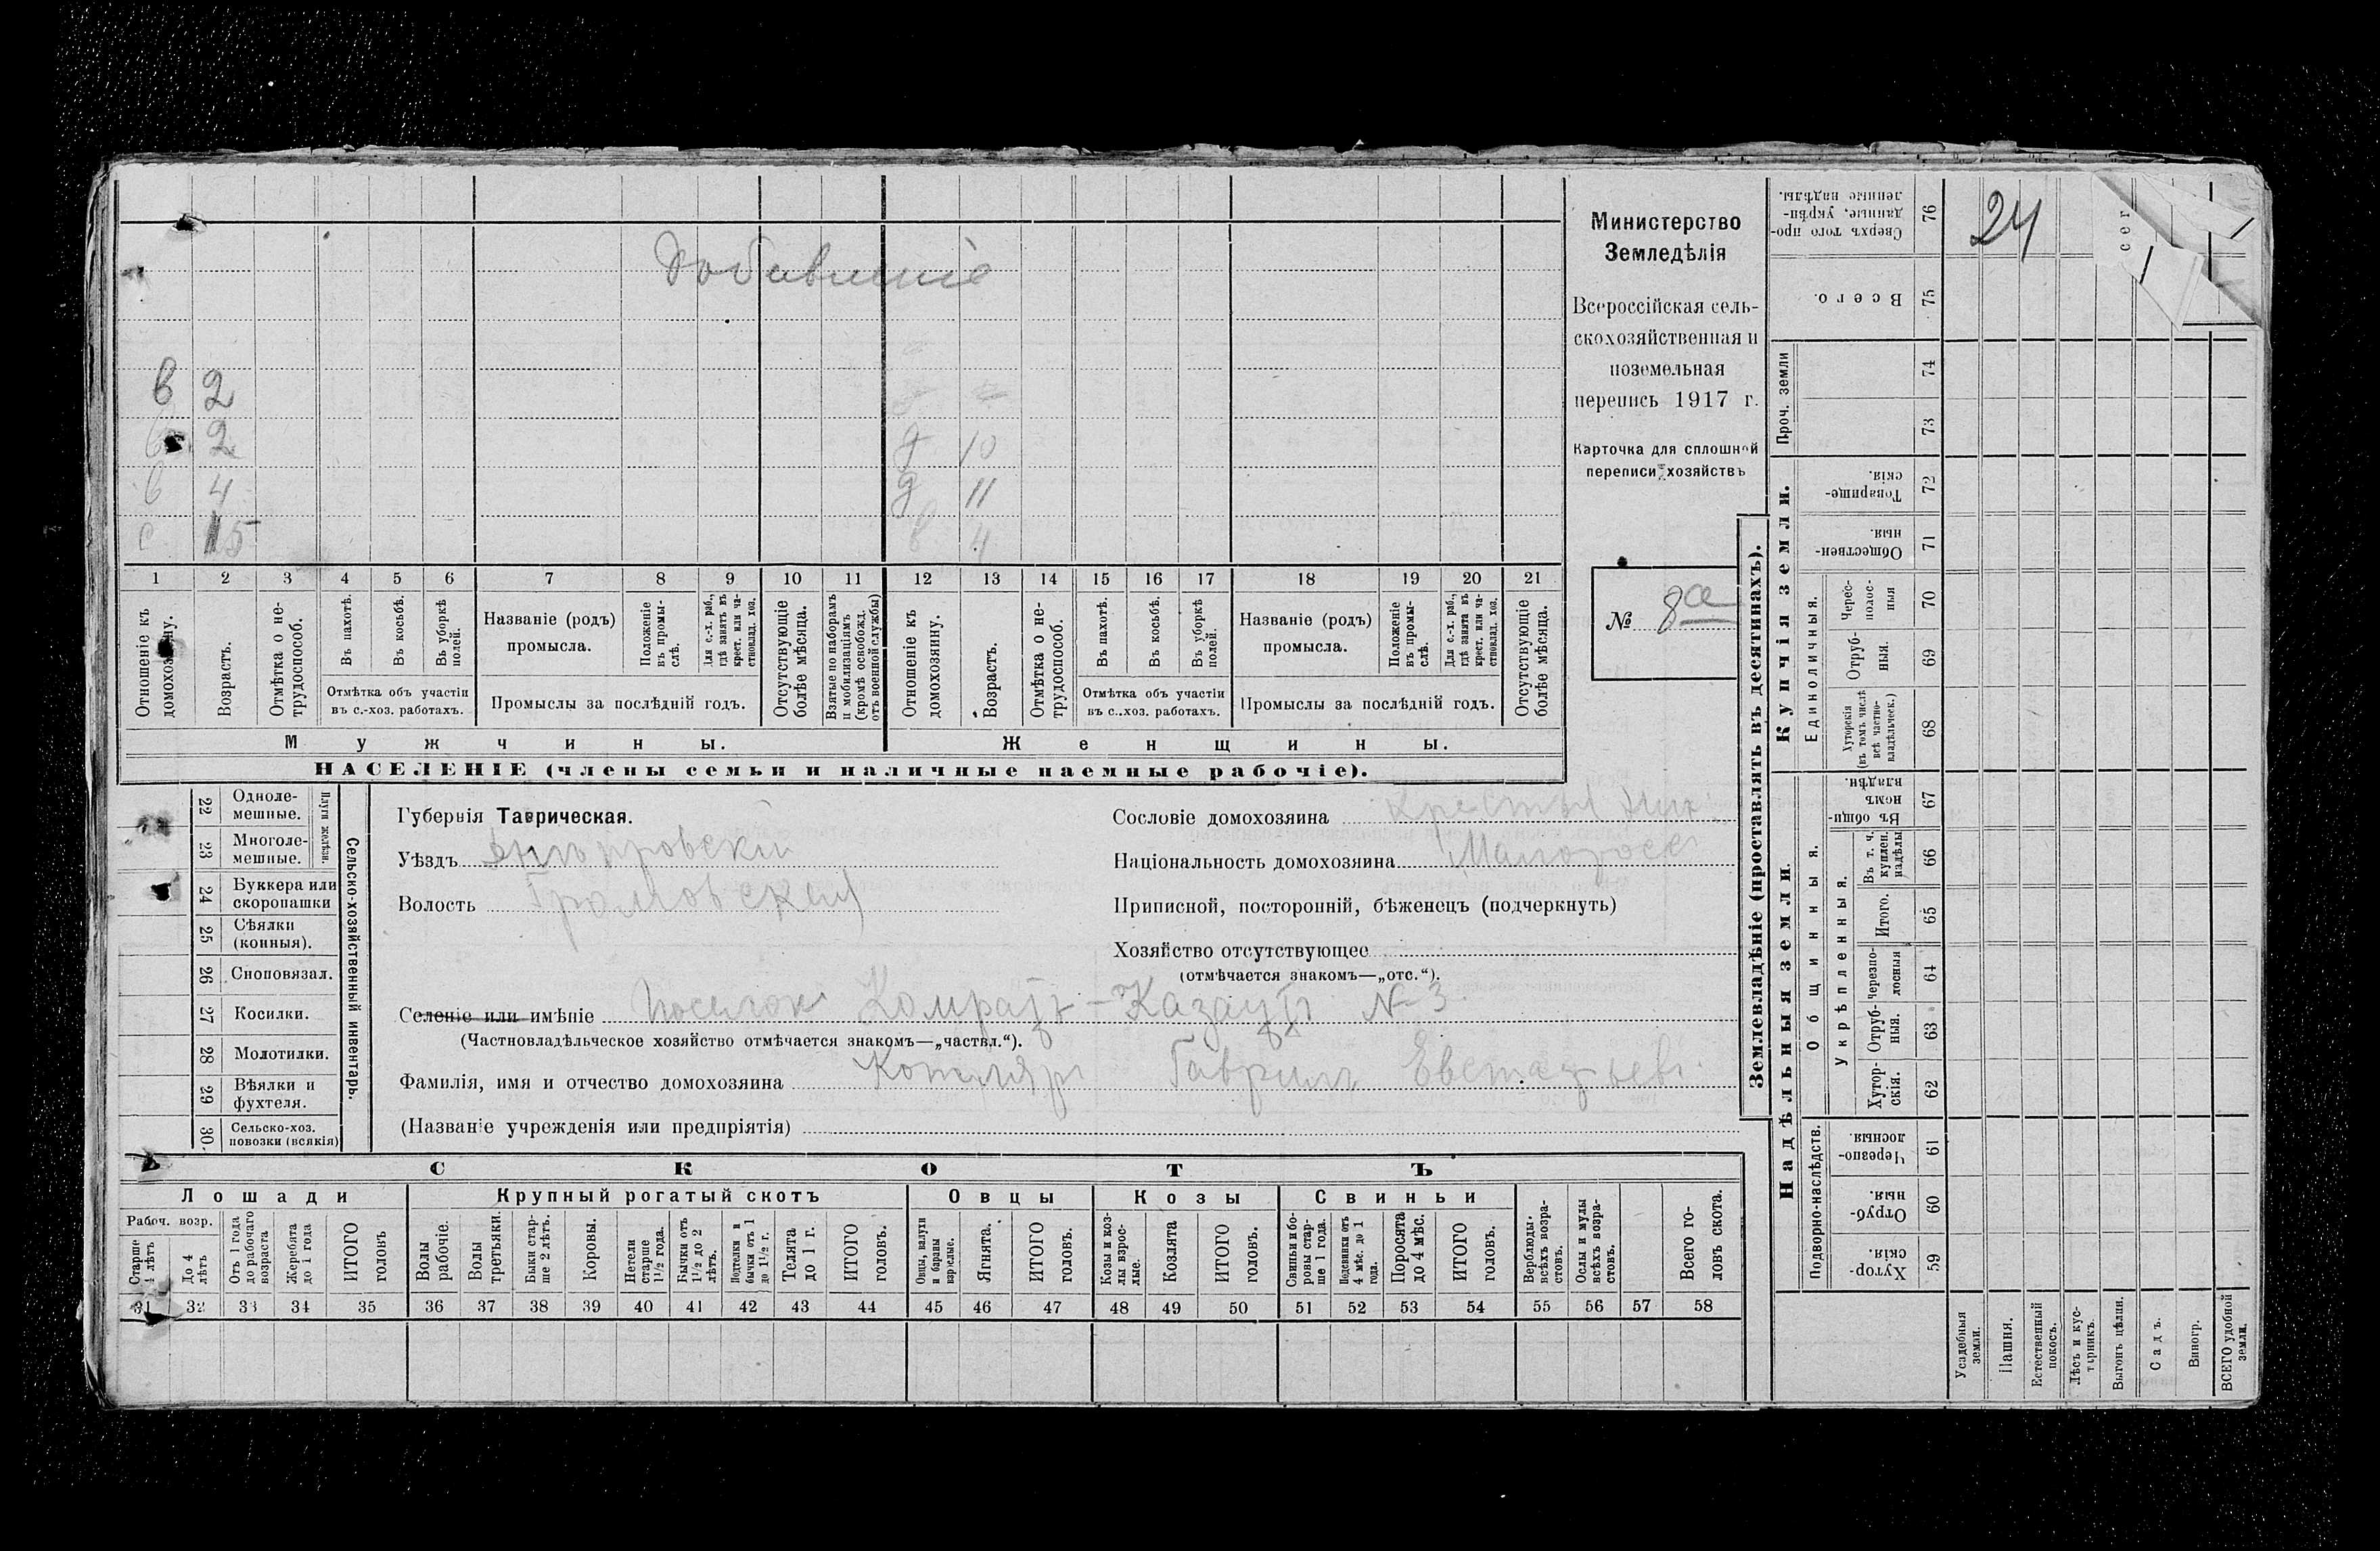 Добавленіе
в 2
2
в 4
с 15
д 10
д 11
в 4
1 2 3 4 5 6 7 8 9 10 11 12 13 14 15 16 17 18 19 20 21
Отношеніе къ домохозяину.
Возрастъ.
Отмѣтка о нетрудоспособ.
Въ пахотѣ.
Въ косьбѣ.
Въ уборкѣ полей.
Отмѣтка объ участіи
въ с.-хоз. работахъ.
Названіе (родъ)
промысла.
Положеніе въ промыслѣ.
Для с.-х. раб., гдѣ занятъ въ крест. или частновлад. хоз.
Промыслы за послѣдній годъ.
Отсутствующіе болѣе мѣсяца.
Взятые по наборамъ и мобилизаціямъ (кромѣ освобожд. отъ военной службы)
Отношеніе къ домохозяину.
Возрастъ.
Отмѣтка о не-трудоспособ.
Въ пахотѣ.
Въ косьбѣ.
Въ уборкѣ полей.
Отмѣтка объ участіи
въ с..хоз. работахъ.
Названіе (родъ)
промысла.
Положеніе въ промыслѣ.
Для с.-х. раб., гдѣ занята въ крест. или частновлад. хоз.
Промыслы за послѣдній годъ.
Отсутствующіе болѣе мѣсяца.
Мужчины.
Женщины.
НАСЕЛЕНІЕ (члены семьи и наличные наемные рабочіе).
Министерство
Земледѣлія
Всероссійская сель-
скохозяйственная и
поземельная
перепись 1917 г.
Карточка для сплошной
переписи хозяйствъ
№ 8а
22 Одноле-
мешные.
23 Многоле-
мешные.
Плуги желѣзн.
24 Буккера или
скоропашки
25 Сѣялки
(конныя).
26 Сноповязал.
27 Косилки.
28 Молотилки.
29 Вѣялки и
фухтеля.
30. Сельско-хоз.
повозки (всякія)
Сельско-хозяйственный инвентарь.
Губернія Таврическая.
Уѣздъ Днѣпровскій
Волость Громовская
Сословіе домохозяина
Національность домохозяина Малоросъ
Приписной, посторонній, бѣженецъ (подчеркнуть)
Хозяйство отсутствующее
(отмѣчается знакомъ—„отс.“).
Селеніе или имѣніе Поселок Комрат-Казацкъ № 3
(Частновладѣльческое хозяйство отмѣчается знакомъ—„частвл.“).
Фамилія, имя и отчество домохозяина Котляръ Гаврилъ Евстафьев.
(Названіе учрежденія или предпріятія)
СКОТЪ
Лошади
Крупный рогатый скотъ
Овцы
Козы
Свиньи
Рабоч. возр.
Старше 4 лѣтъ
До 4 лѣтъ
Отъ 1 года до рабочаго возраста
Жеребята до 1 года
ИТОГО головъ
Волы рабочіе.
Волы третьяки.
Быки старше 2 лѣтъ.
Коровы.
Нетели старше 1½ года.
Бычки отъ 1½ до 2 лѣтъ.
Подтелки и бычки отъ 1 до 1½ г.
Телята до 1 г.
ИТОГО головъ.
Овцы, валухи и бараны взрослые.
Ягнята.
ИТОГО головъ.
Козы и козлы взрослые.
Козлята
ИТОГО головъ.
Свиньи и боровы старше 1 года.
Подсвинки отъ 4 мѣс. до 1 года.
Поросята до 4 мѣс.
ИТОГО головъ.
Верблюды всѣхъ возрастовъ.
Ослы и мулы всѣхъ возрастовъ.
Всего головъ скота.
31 32 33 34 35 36 37 38 39 40 41 42 43 44 45 46 47 48 49 50 51 52 53 54 55 56 57 58
Землевладѣніе (проставлять въ десятинахъ).
Сверхъ того проданные, укрѣпленные надѣлы. 76
24
Всего. 75
Проч. земли
74
73
Купчія земли.
Товарищескія. 72
Общественныя. 71
Единоличныя.
Черес-полос-ныя 70
Отруб-ныя. 69
Хуторскія (въ томъ числѣ всѣ частно-владѣльческ.) 68
Надѣльныя земли.
Общинныя.
Въ общинномъ владѣн. 67
Укрѣпленныя.
Въ т. ч. куплен. надѣлы 66
Итого. 65
Черезпо-лосныя 64
Отруб-ныя. 63
Хутор-скія. 62
Подворно-наслѣдств.
Черезпо-лосныя 61
Отруб-ныя. 60
Хутор-скія. 59
Усадебныя земли.
Пашня.
Естественный покосъ.
Лѣсъ и кустарникъ.
Выгонъ цѣлин.
Садъ.
Виногр.
ВСЕГО удобной земли.